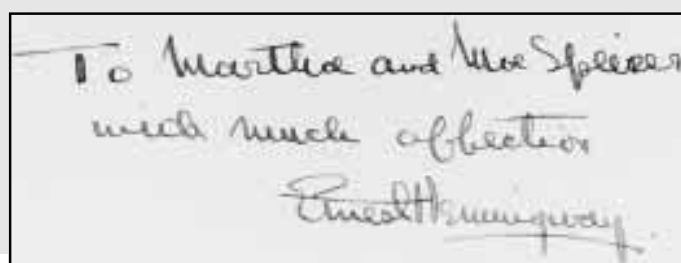 To Martha and Moe Speiser
with much affection
Ernest Hemingway